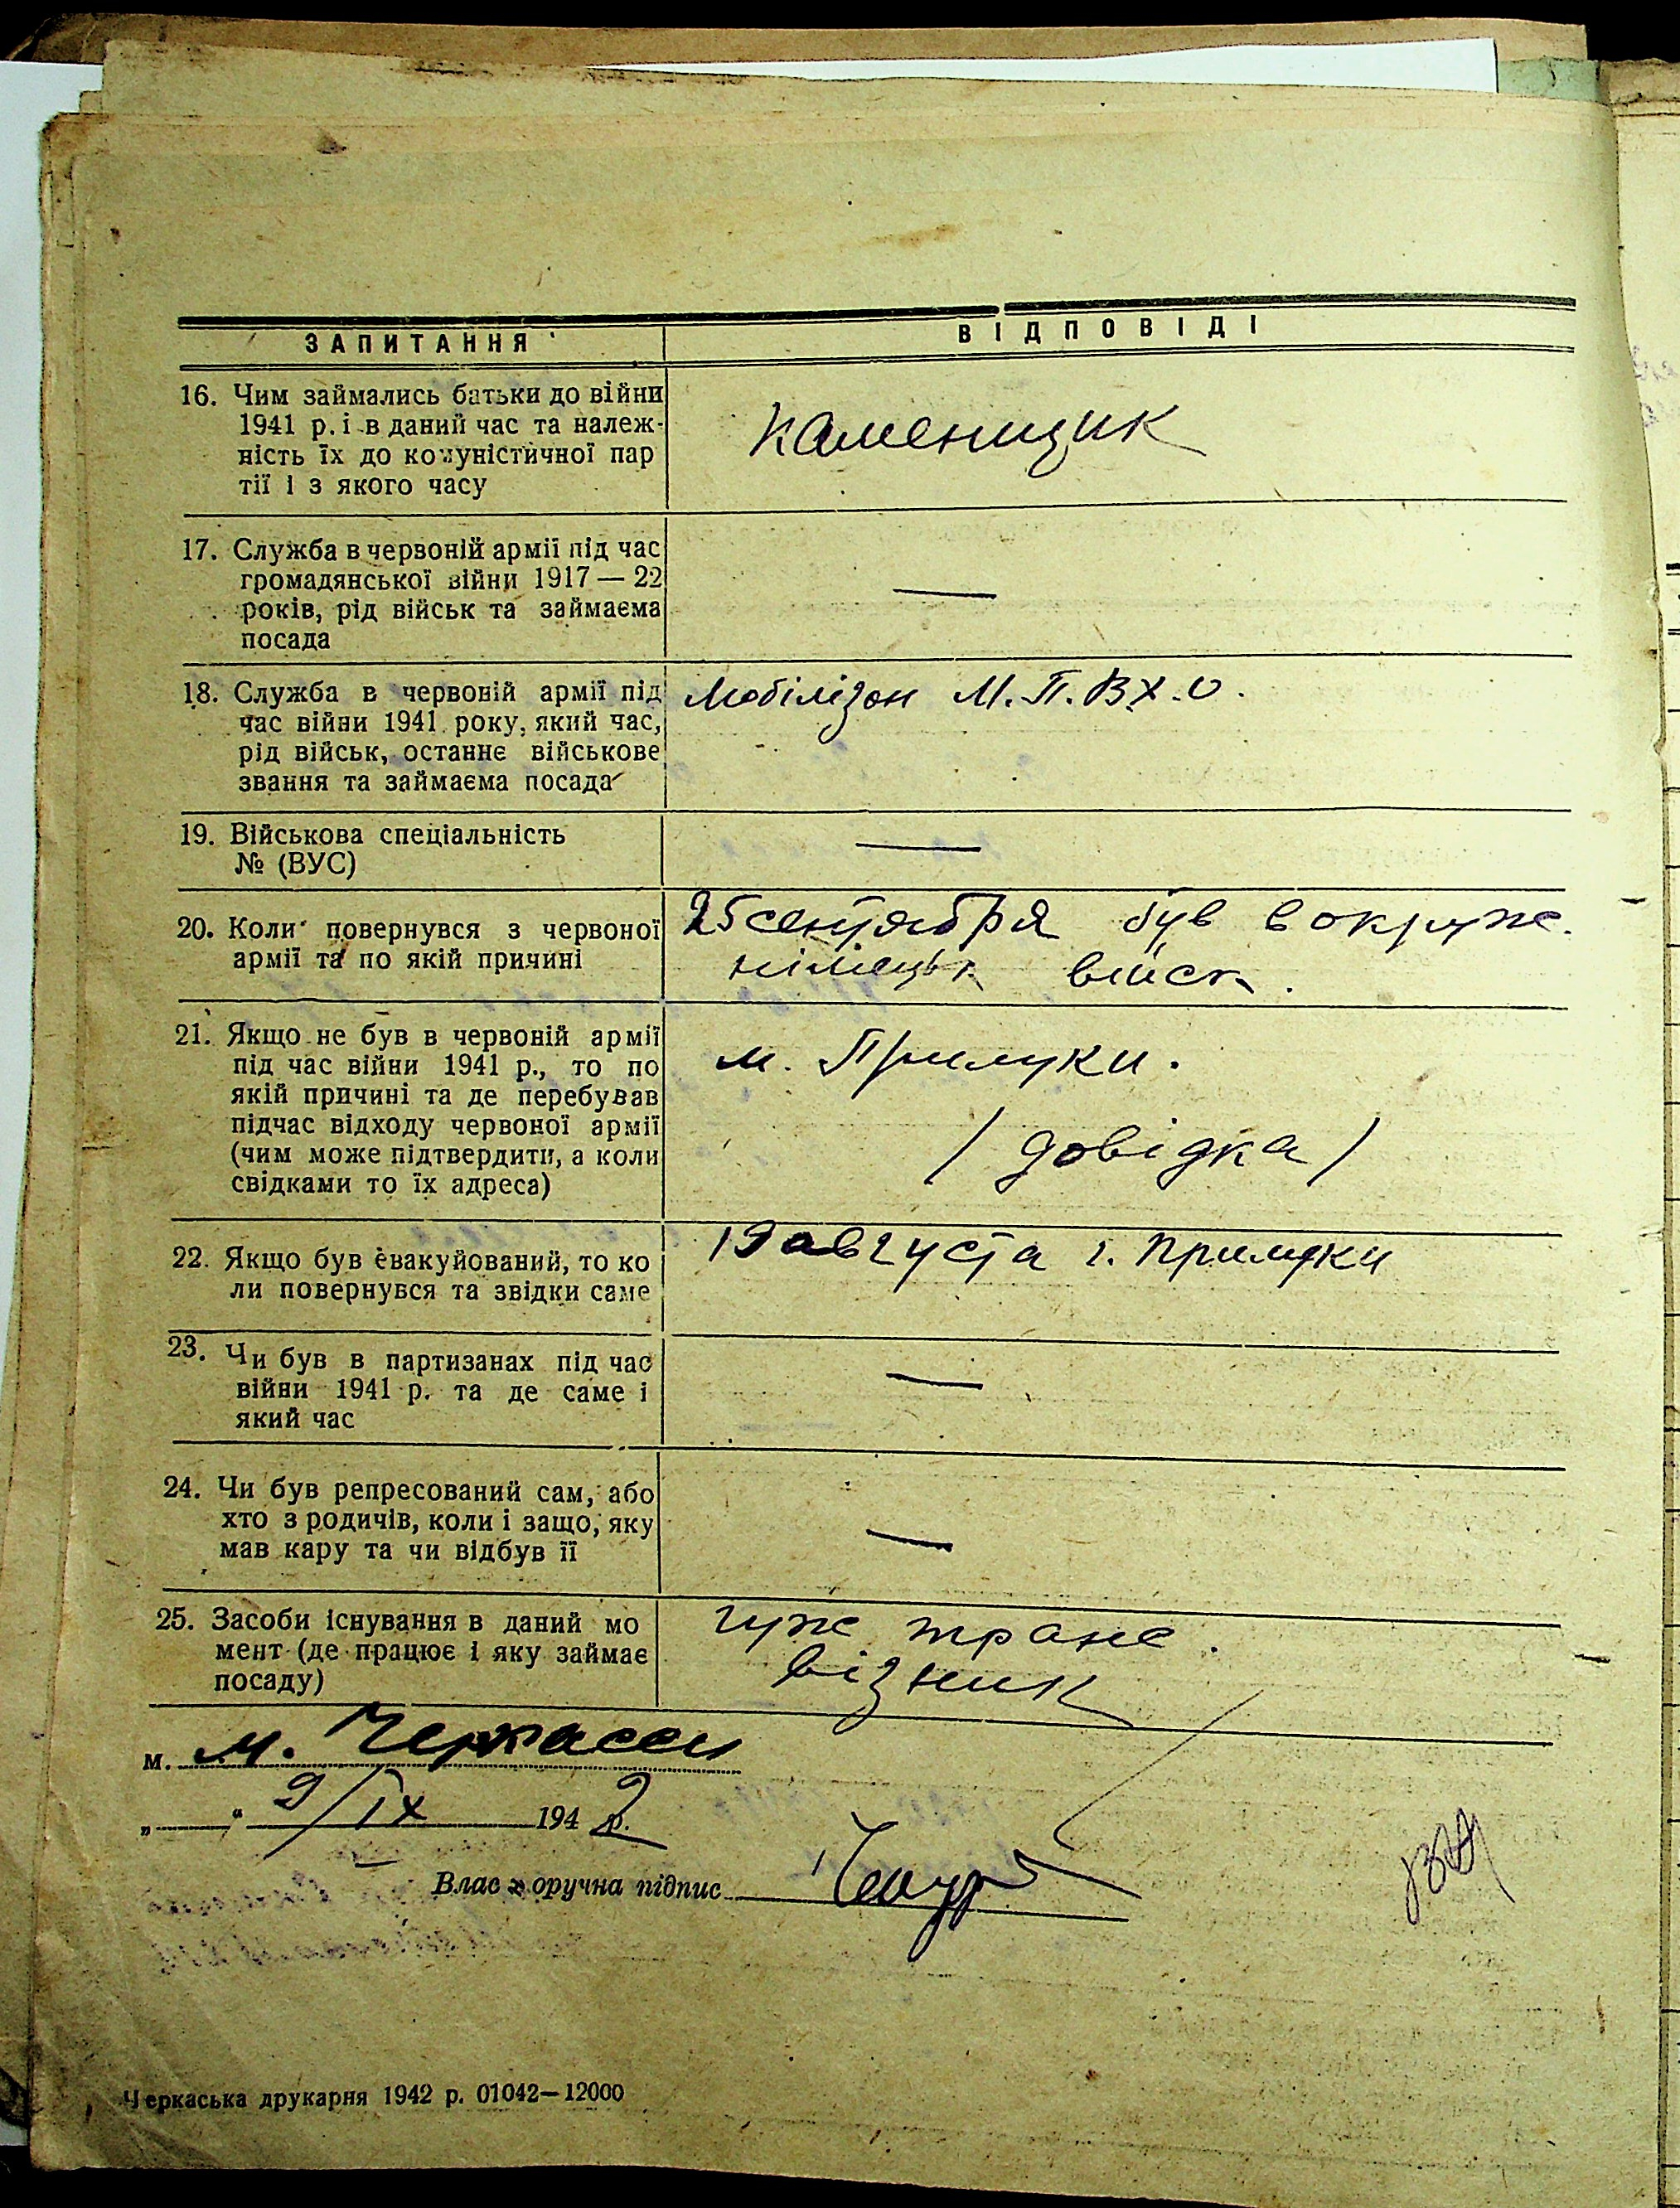 ЗАПИТАННЯ
ВІДПОВІДІ
16. Чим займались батьки до війни
1941 р. і в даний час та належ-
ність їх до комуністичної пар
тії і з якого часу
Каменщик
17. Служба в червоній армії під час
громадянської війни 1917 — 22
років, рід військ та займаєма
посада
—
18. Служба в червоній армії під
час війни 1941 року, який час,
рід військ, останнє військове
звання та займаєма посада
Мобілізон М.П.В.Х.О.
19. Військова спеціальність
№ (ВУС)
—
20. Коли повернувся з червоної
армії та по якій причині
25 сентября був в окруже.
німецьк війск.
21. Якщо не був в червоній армії
під час війни 1941 р., то по
якій причині та де перебував
підчас відходу червоної армії
(чим може підтвердити, а коли
свідками то їх адреса)
м. Прилуки.
/ довідка /
22. Якщо був евакуйований, то ко
ли повернувся та звідки саме
19 августа г. Прилуки
23. Чи був в партизанах під час
війни 1941 р. та де саме і
який час
—
24. Чи був репресований сам, або
хто з родичів, коли і защо, яку
мав кару та чи відбув її
—
25. Засоби існування в даний мо
мент (де працює і яку займає
посаду)
гуж транс.
візник
м. м. Черкассы
„ “ 9/IX 1942 р.
Власноручна підпис
Черкаська друкарня 1942 р. 01042—12000